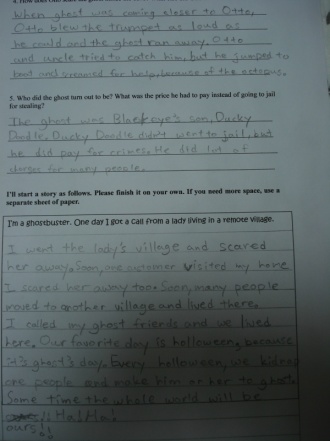 When ghost was coming closer to Otto,
Otto blew the trumpet as loud as
he could and the ghost ran away. Otto
and uncle tried to catch him, but he jumped to
boat and screamed for help, because of the octopus.
5. Who did the ghost turn out to be? What was the price he had to pay instead of going to jail
for stealing?
The ghost was Blackeye's son, Ducky
Doodle. Ducky Doodle didn't went to jail, but
he did pay for crimes. He did lot of
chores for many people.
I'll start a story as follows. Please finish it on your own. If you need more space, use a
separate sheet of paper.
I'm a ghostbuster. One day I got a call from a lady living in a remote village.
I went the lady's village and scared
her away. Soon, one customer visited my home
I scared her away too. Soon, many people
moved to another village and lived there.
I called my ghost friends and we lived
here. Our favorite day is holloween, because
it's ghost's day. Every holloween, we kidnap
one people and make him or her to ghost.
Some time the whole world will be
ours!! Ha! Ha!